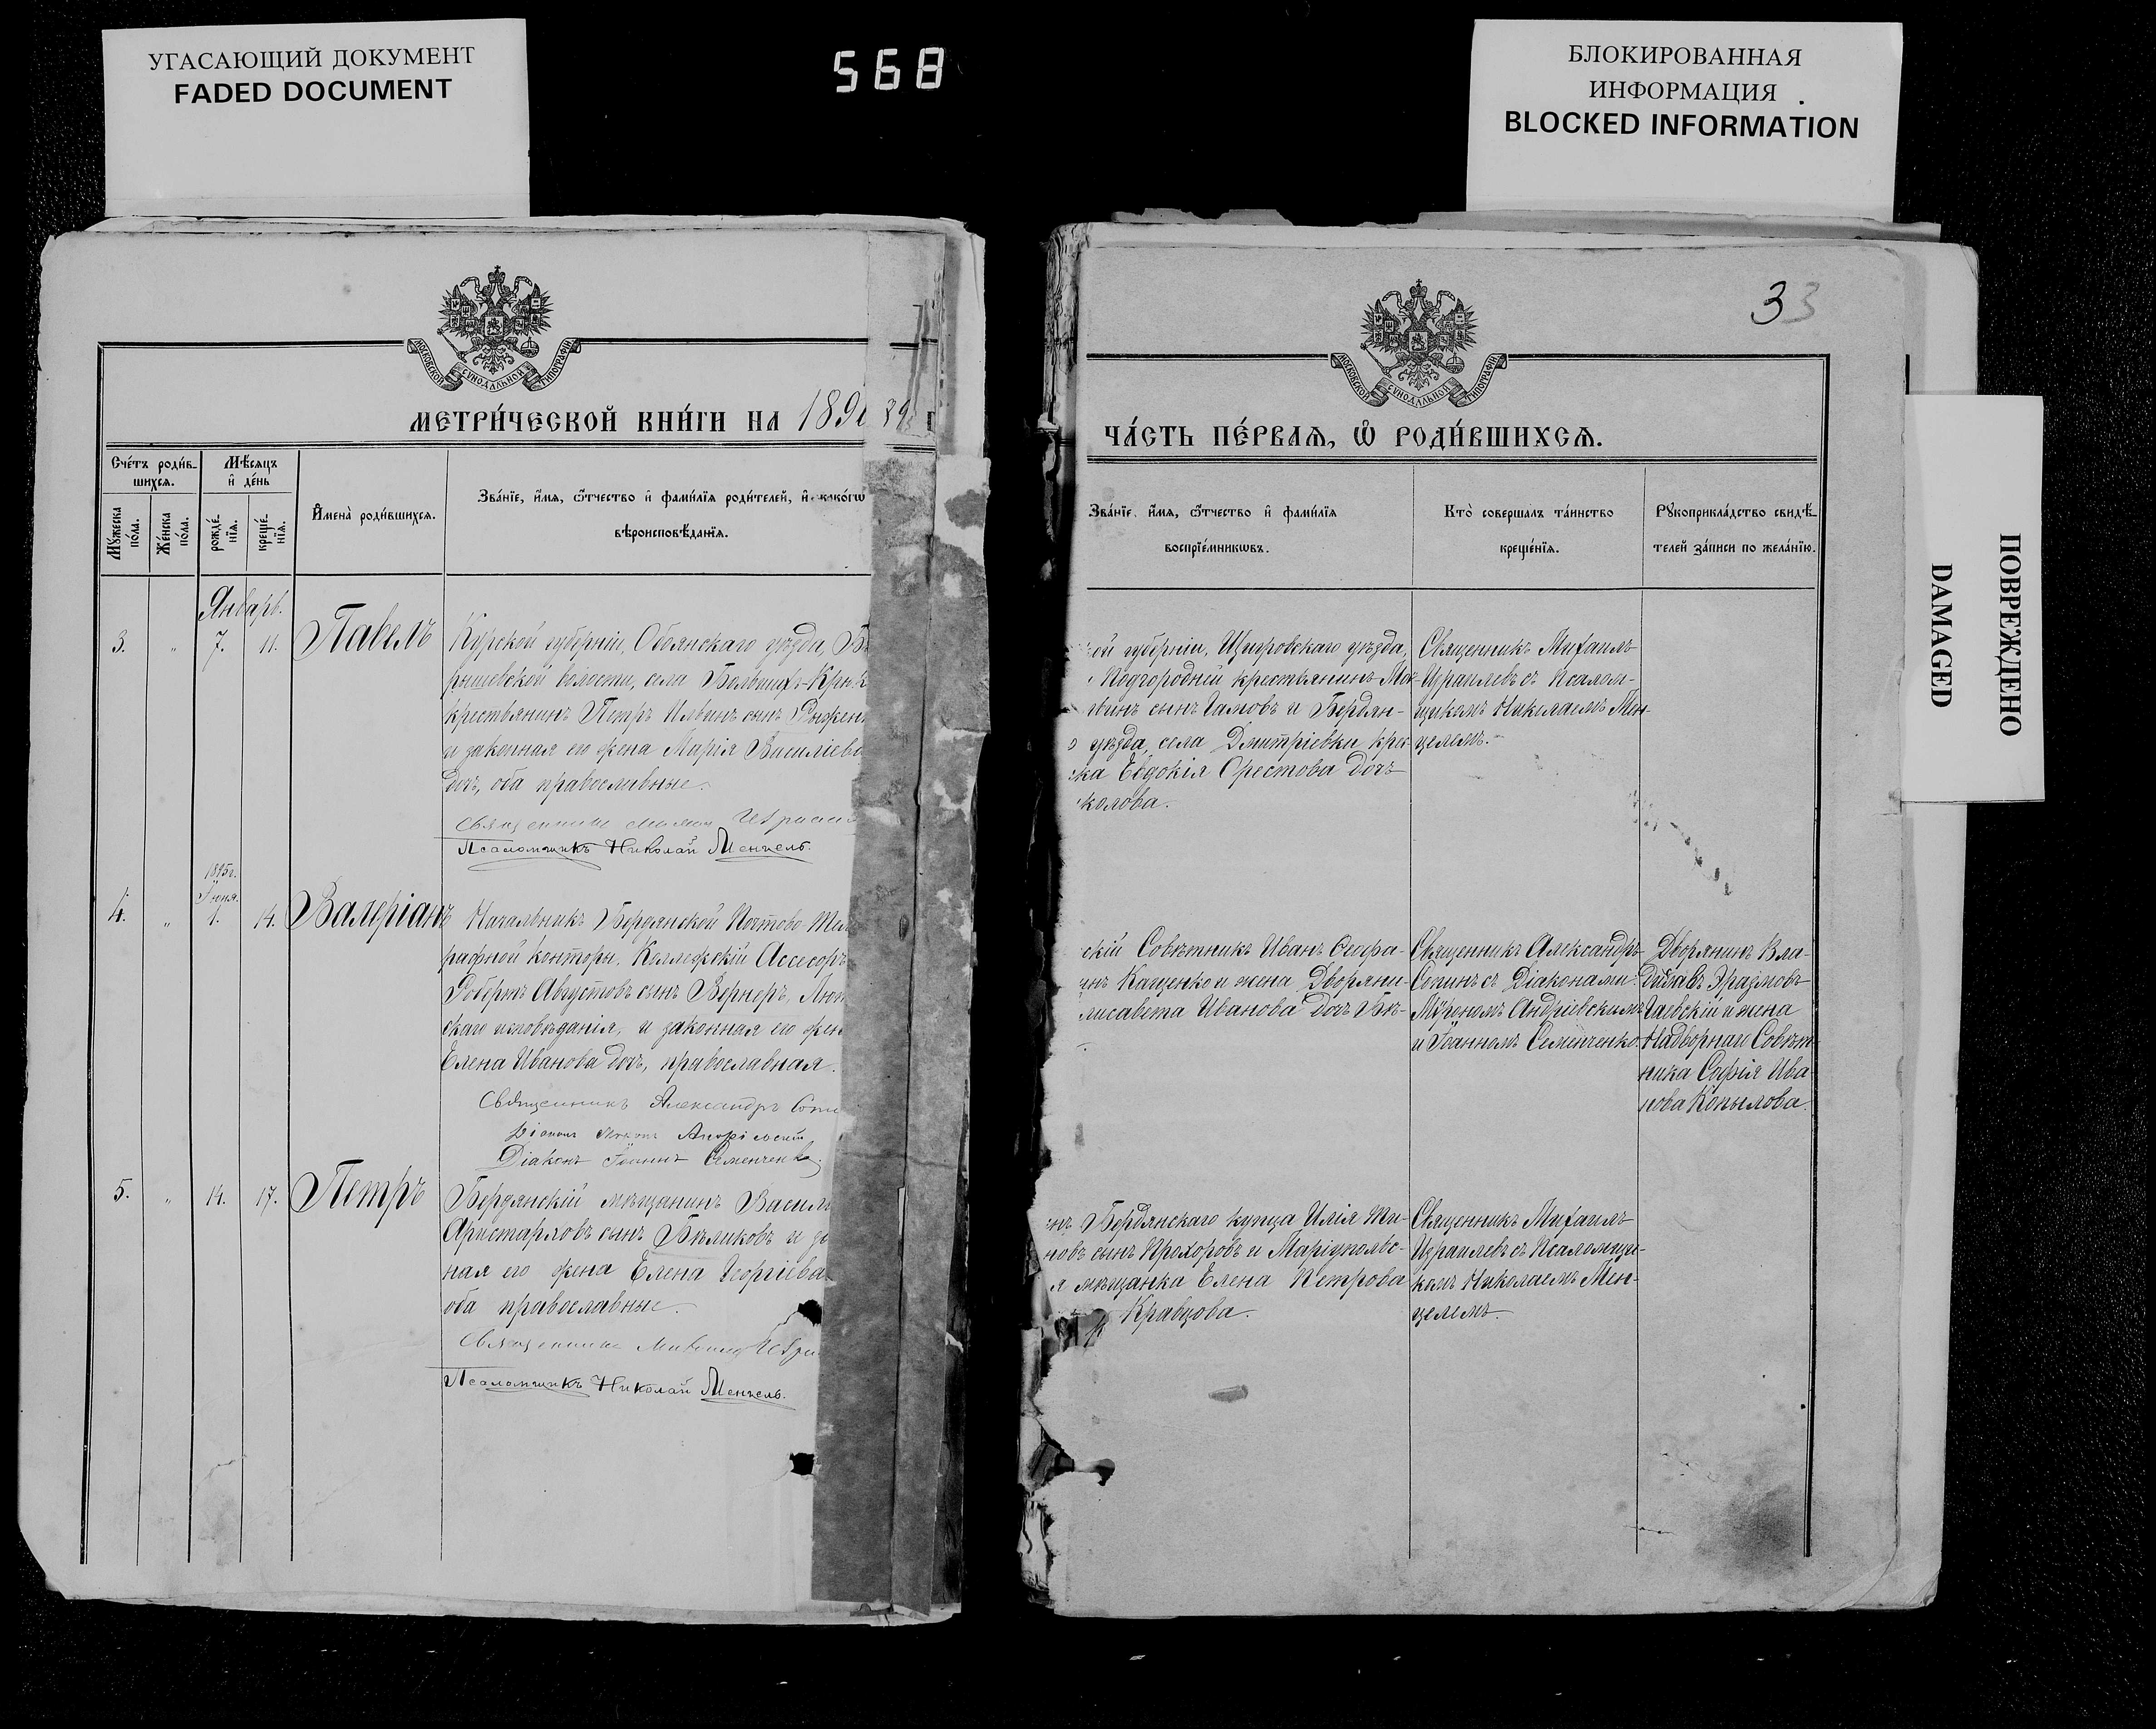 УГАСАЮЩИЙ ДОКУМЕНТ
FADED DOCUMENT
568
БЛОКИРОВАННАЯ
ИНФОРМАЦИЯ
BLOCKED INFORMATION
МОСКОВСКОЙ СУНОДАЛЬНОЙ ТИПОГРАФІИ
МЕТРИ́ЧЕСКОЙ КНИ́ГИ НА 189
Сче́тъ роди́в-
шихсѧ.
Мѣ́сѧцъ
и҆ де́нь
Мꙋ́жеска
по́ла.
Же́нска
по́ла.
рожде́-
нїѧ.
креще́-
нїѧ.
И҆мена̀ роди́вшихсѧ.
Зва́нїе, и҆́мѧ, ѻ҆́тчество и҆ фами́лїѧ роди́телей, и҆ како́гѡ
вѣроисповѣ́данїѧ.
Январь.
3. " 7. 11. Павелъ
Курской губерніи, Обоянскаго уѣзда,
рышевской волости, села
крестьянинъ Петръ Ильинъ сынъ
и законная его жена Марія Василіева
дочь, оба православные.
Священникъ
Псаломщикъ Николай Менцель.
1895г.
Іюня.
4. " 1. 14. Валеріанъ
Начальникъ Бердянской Почтово-Теле
графной Конторы, Коллежскій Ассесоръ
Робертъ Августовъ сынъ Вернеръ,
скаго исповѣданія, и законная его жена
Елена Иванова дочь, православная.
Священникъ Александръ
Діаконъ
Діаконъ Іоаннъ Семенченко.
5. " 14. 17. Петръ
Бердянскій мѣщанинъ Васил
Аристарховъ сынъ Бѣликовъ и за
ная его жена Елена Георгіева
оба православные.
Священникъ
Псаломщикъ Николай Менцель.
33
МОСКОВСКОЙ СУНОДАЛЬНОЙ ТИПОГРАФІИ
ЧА́СТЬ ПЕ́РВАѦ, Ѡ҆ РОДИ́ВШИХСѦ.
Зва́нїе, и҆́мѧ, ѻ҆́тчество и҆ фами́лїѧ
воспрїе́мникѡвъ.
Кто̀ соверша́лъ та́инство
креще́нїѧ.
Рꙋкоприкла́дство свидѣ́-
телей за́писи по жела́нїю.
ой губерніи, Щигровскаго уѣзда,
Подгородній крестьянинъ
сынъ и Бердян-
уѣзда, села Дмитріевки крес-
ка Евдокія Орестова дочь
колова.
Священникъ Михаилъ
Израилевъ съ псалом-
щикомъ Николаемъ Мен-
целемъ.
скій Совѣтникъ Иванъ
Кащенко и жена Дворяни-
лисавета Иванова дочь
Священникъ Александръ
съ Діаконами:
Андріевскимъ
и Іоанномъ Семенченко.
Дворянинъ Вла-
диславъ Эразмовъ
Гаевскій и жена
Надворнаго Совѣт-
ника Софія Ива-
нова Копылова.
Бердянскаго купца Илія Ти-
новъ сынъ Прохоровъ и Маріупольс-
я мѣщанка Елена Петрова
Кравцова.
Священникъ Михаилъ
Израилевъ съ псаломщи-
комъ Николаемъ Мен-
целемъ.
ПОВРЕЖДЕНО
DAMAGED